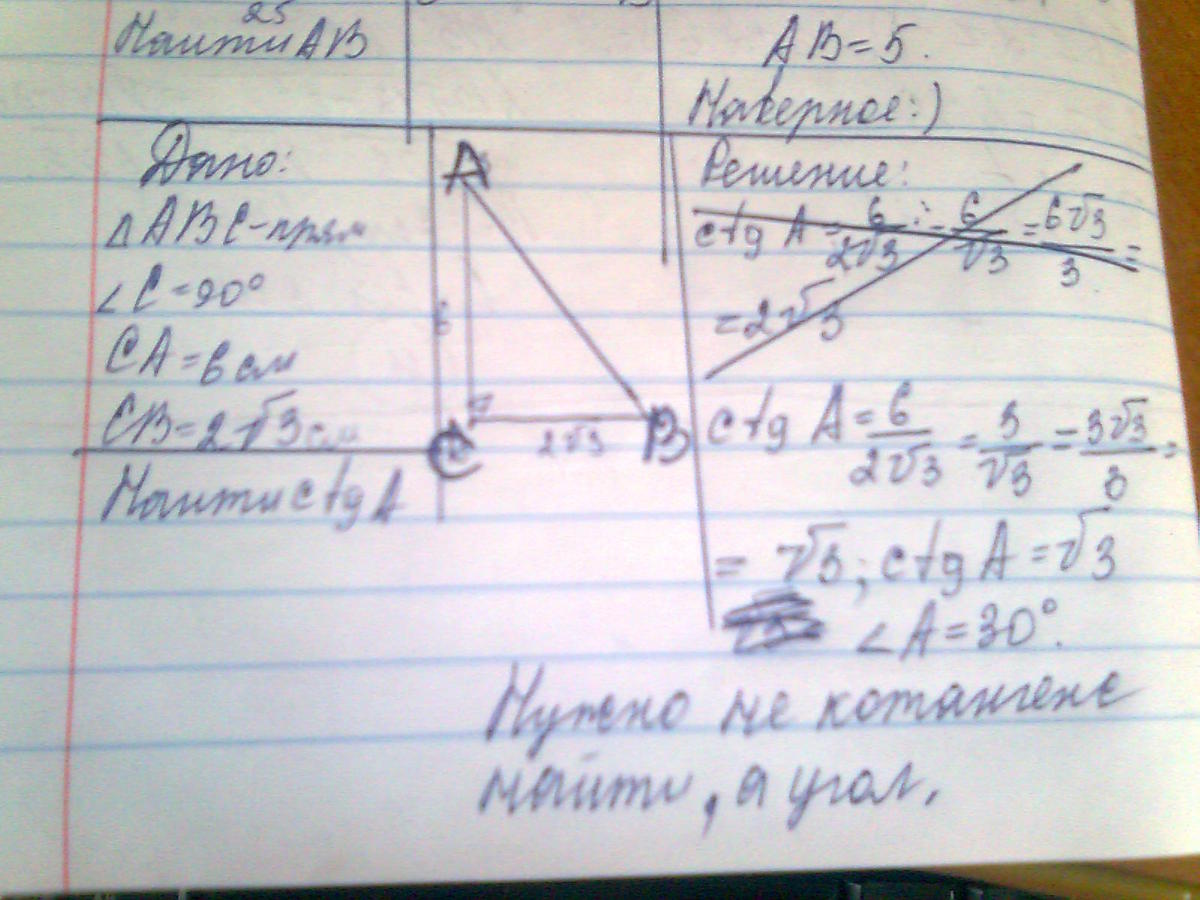 25
Найти AB
AB=5.
Наверное:)
Дано:
△ABC-прям
∠C=90°
CA=6см
CB=2√3см
Найти ctg A
A
6
C
2√3
B
Решение:
ctg A = 6/2√3 = 6/√3 = 6√3/3 =
=2√3
ctg A = 6/2√3 = 3/√3 = 3√3/3 =
= √3; ctg A = √3
∠A=30°.
Нужно не котангенс
найти, а угол.